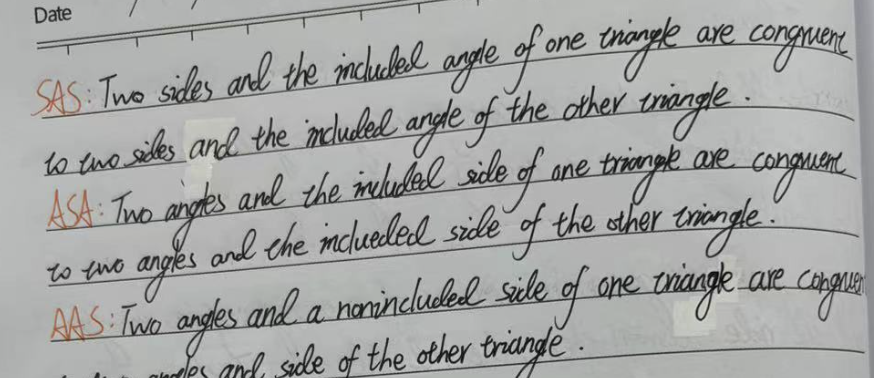 Date
SAS: Two sides and the included angle of one triangle are congruent
to two sides and the included angle of the other triangle.
ASA: Two angles and the included side of one triangle are congruent
to two angles and the inclueded side of the other triangle.
AAS: Two angles and a nonincluded side of one triangle are congruen
angles and side of the other triangle.